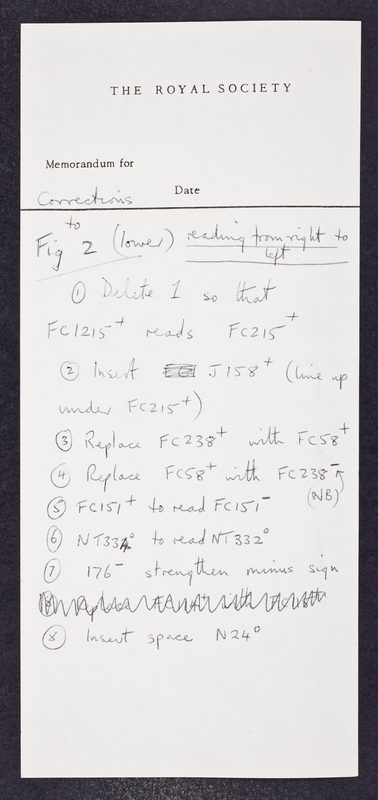 THE ROYAL SOCIETY
Memorandum for
Corrections
Date
to
Fig 2 (lower) reading from right to
left
① Delete 1 so that
FC1215⁺ reads FC215⁺
② Insert J158⁺ (line up
under FC215⁺)
③ Replace FC238⁺ with FC58⁺
④ Replace FC58⁺ with FC238⁻
(NB)
⑤ FC151⁺ to read FC151⁻
⑥ NT334° to read NT332°
⑦ 176⁻ strengthen minus sign
⑧ Insert space N24°